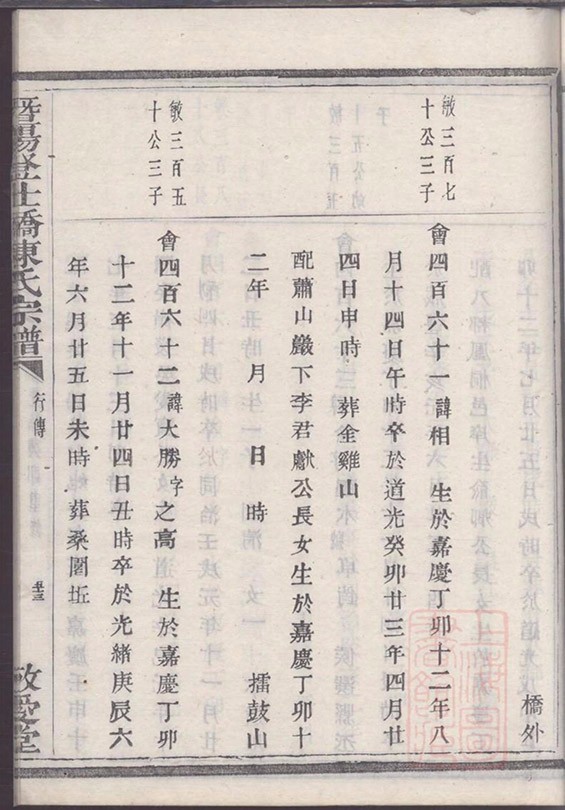 橋外
敏三百七
十公三子
會四百六十一諱相　生於嘉慶丁卯十二年八
月十四日午時卒於道光癸卯廿三年四月廿
四日申時　葬金雞山
配蕭山巖下李君獻公長女生於嘉慶丁卯十
二年　月　日　時　　擂鼓山
敏三百五
十公三子
會四百六十二諱大勝字之高　生於嘉慶丁卯
十二年十一月廿四日丑時卒於光緒庚辰六
年六月廿五日未時　葬桑園坵
暨陽登仕橋陳氏宗譜
行傳
敬愛堂